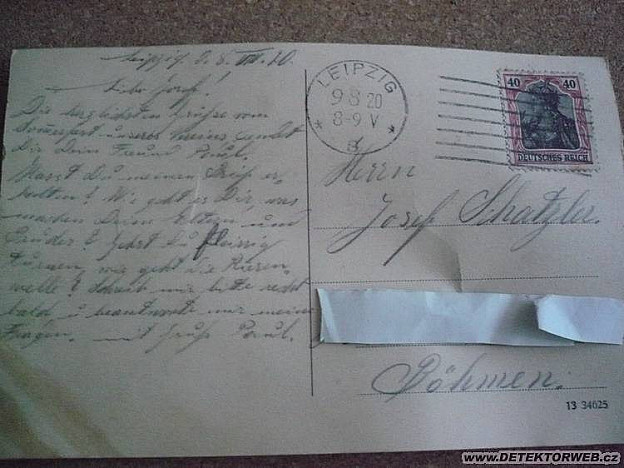 Leipzig, d. 8. VIII. 20
Lieber Josef!
Die herzlichsten Grüsse vom
Sommerfest unseres Vereins sendet
Dir Dein Freund Paul.
Hast Du meinen Brief er-
halten? Wie geht es Dir, was
machen Deine Eltern und
Gehst Du fleissig
turnen, wie geht die Riesen-
welle? Schreib mir bitte recht
bald u beantworte mir meine
Fragen. mit Gruß Paul.
LEIPZIG
9 8 20
8-9 V
40 40
DEUTSCHES REICH
Herrn
Josef Schatzler.
Böhmen.
13 34625
www.DETEKTORWEB.cz